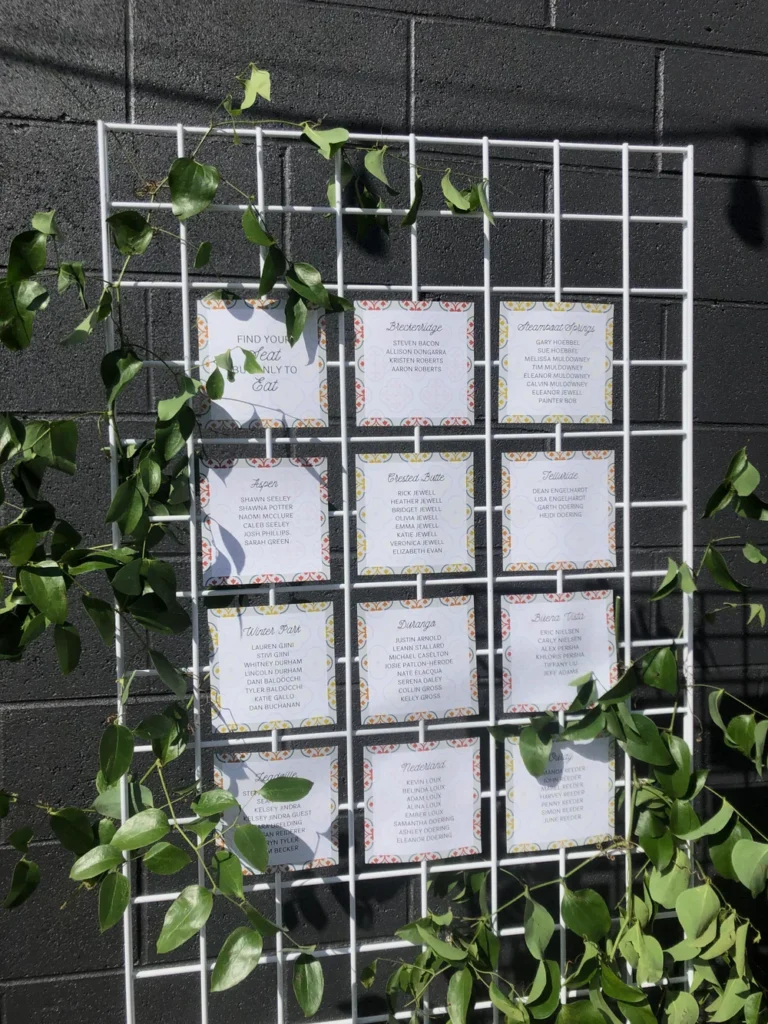 FIND YOUR
Seat
ONLY TO
Eat
Breckenridge
STEVEN BACON
ALLISON DONGARRA
KRISTEN ROBERTS
AARON ROBERTS
Steamboat Springs
GARY HOEBBEL
SUE HOEBBEL
MELISSA MULDOWNEY
TIM MULDOWNEY
ELEANOR MULDOWNEY
CALVIN MULDOWNEY
ELEANOR JEWELL
PAINTER BOB
Aspen
SHAWN SEELEY
SHAWNA POTTER
NAOMI MCCLURE
CALEB SEELEY
JOSH PHILLIPS
SARAH GREEN
Crested Butte
RICK JEWELL
HEATHER JEWELL
BRIDGET JEWELL
OLIVIA JEWELL
EMMA JEWELL
KATIE JEWELL
VERONICA JEWELL
ELIZABETH EVAN
Telluride
DEAN ENGELHARDT
LISA ENGELHARDT
GARTH DOERING
HEIDI DOERING
Winter Park
LAUREN GIINI
STEVI GIINI
WHITNEY DURHAM
LINCOLN DURHAM
DANI BALDOCCHI
TYLER BALDOCCHI
KATIE GALLO
DAN BUCHANAN
Durango
JUSTIN ARNOLD
LEANN STALLARD
MICHAEL CASELTON
JOSIE
NATE ELACQUA
SERENA DALEY
COLLIN GROSS
KELLY GROSS
Buena Vista
ERIC NIELSEN
CARLY NIELSEN
ALEX PERIHA
KHLORIS PERIHA
TIFFANY LU
JEFF ADAMS
Leadville
KELSKY JINDRA
KELSEY JINDRA GUEST
TYLER
BECKER
Nederland
KEVIN LOUX
BELINDA LOUX
ADAM LOUX
ALINA LOUX
EMBER LOUX
SAMANTHA DOERING
ASHLEY DOERING
ELEANOR DOERING
Ouray
REEDER
REEDER
REEDER
HARVEY REEDER
PENNY REEDER
SIMON REEDER
JUNE REEDER